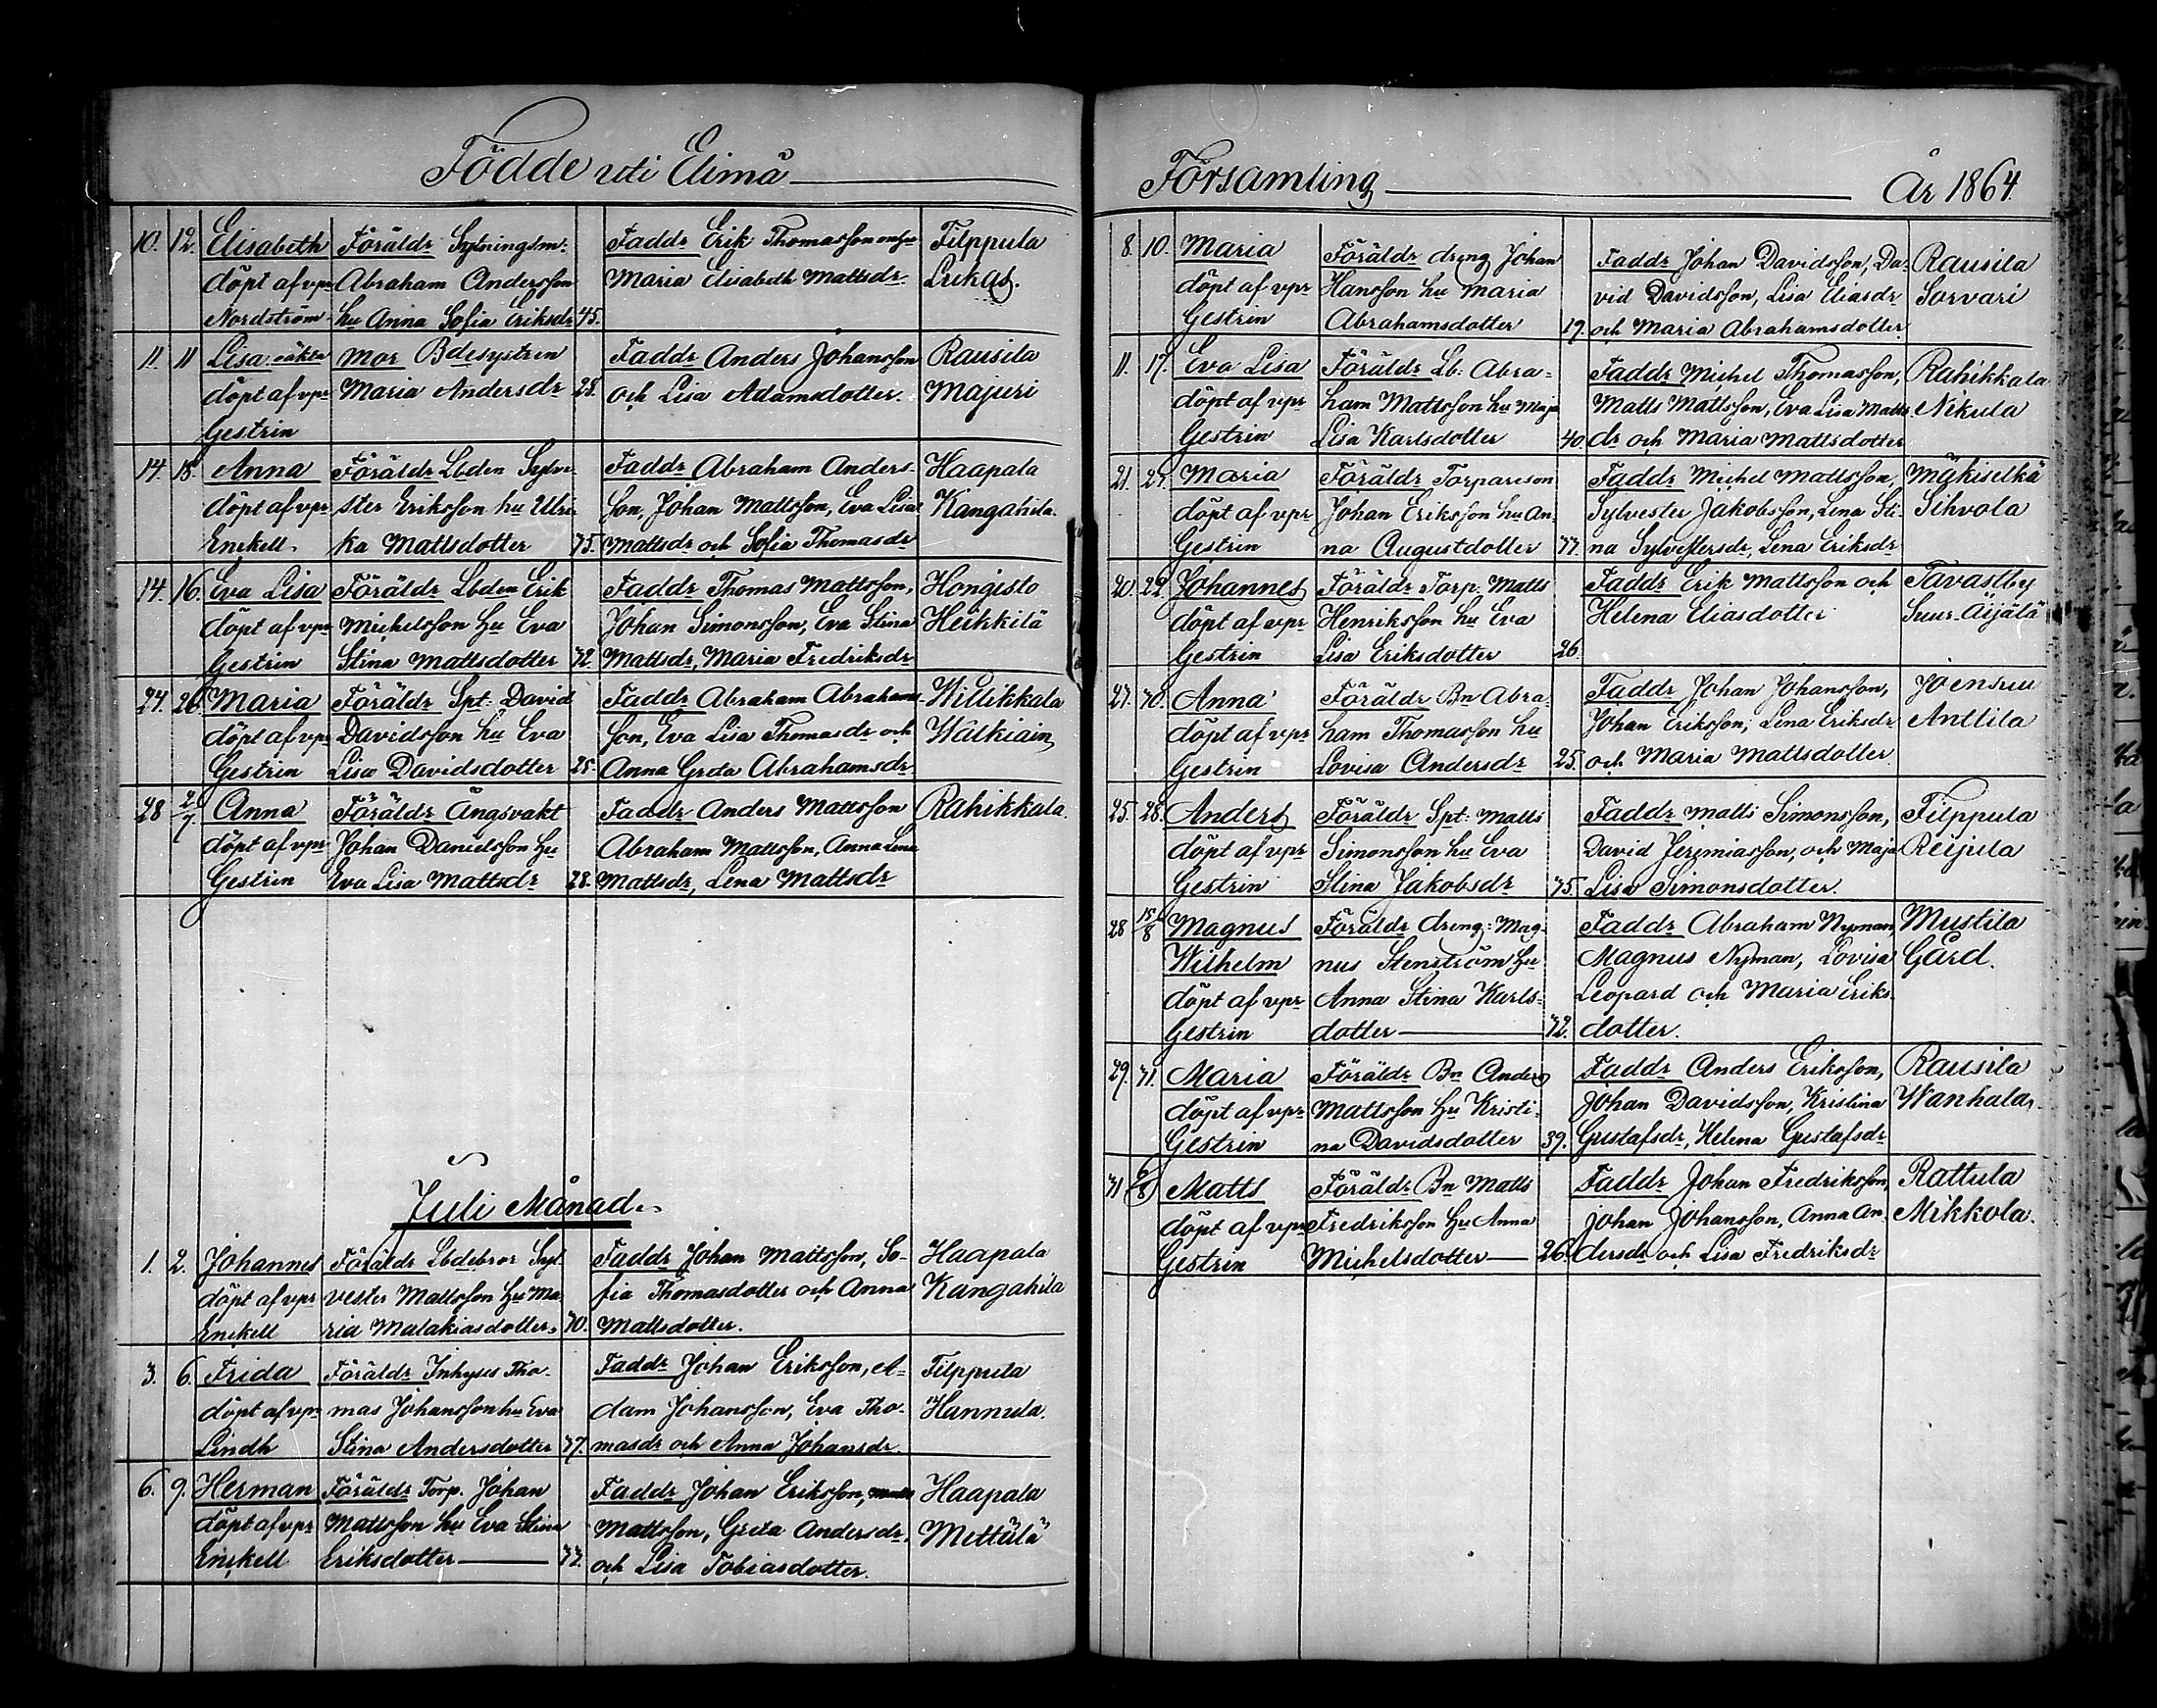 Födde uti Elimä
10. 12. Elisabeth Föräldr Sytningsm: Faddr Erik Thomasson Filppula
döpt af vpr Abraham Andersson Maria Elisabeth Mattsdr Lukas.
Nordström hu Anna Sofia Eriksdr 45.
11. 11 Lisa oäkta Mor Bdesystren Faddr Anders Johansson Rausila
döpt af vpr Maria Andersdr 28. och Lisa Adamsdotter. Majuri
Gestrin
14. 18. Anna Föräldr Lbden Sylve- Faddr Abraham Anders- Haapala
döpt af vpr ster Eriksson hu Ulri- son, Johan Mattsson, Eva Lisa Kangahila.
Enckell ka Mattsdotter 35. Mattsdr och Sofia Thomasdr
14. 16. Eva Lisa Föräldr Lbden Erik Faddr Thomas Mattsson, Hongisto
döpt af vpr Michelsson hu Eva Johan Simonsson, Eva Stina Heikkilä
Gestrin Stina Mattsdotter 32. Mattsdr, Maria Fredriksdr
24. 26. Maria Föräldr Spt: David Faddr Abraham Abrahams- Willikkala
döpt af vpr Davidsson hu Eva son, Eva Lisa Thomasdr och Walkiain
Gestrin Lisa Davidsdotter 25. Anna Greta Abrahamsdr
28 2/7. Anna Föräldr Ängsvakt Faddr Anders Mattsson Rahikkala.
döpt af vpr Johan Danielsson hu Abraham Mattsson, Anna Lena
Gestrin Eva Lisa Mattsdr 28. Mattsdr, Lena Mattsdr
Juli Månad.
1. 2. Johannes Föräldr Lbdebror Syl- Faddr Johan Mattsson, So- Haapala
döpt af vpr vester Mattsson hu Ma- fia Thomasdotter och Anna Kangahila
Enckell ria Malakiasdotter. 30. Mattsdotter.
3. 6. Frida Föräldr Inhyses Tho- Faddr Johan Eriksson, A- Filppula
döpt af vpr mas Johansson hu Eva dam Johansson, Eva Tho- Hannula.
Lindh Stina Andersdotter 37. masdr och Anna Johansdr.
6. 9. Herman Föräldr Torp. Johan Faddr Johan Eriksson, Matts Haapala
döpt af vpr Mattsson hu Eva Stina Mattsson, Greta Andersdr, Mettälä
Enckell Eriksdotter 33. och Lisa Tobiasdotter.
Församling År 1864.
8. 10. Maria Föräldr dreng Johan Faddr Johan Davidsson, Da- Rausila
döpt af vpr Hansson hu Maria vid Davidsson, Lisa Eliasdr Sorvari
Gestrin Abrahamsdotter 19. och Maria Abrahamsdotter.
11. 17. Eva Lisa Föräldr Lb: Abra- Faddr Michel Thomasson, Rahikkala
döpt af vpr ham Mattsson hu Maja Matts Mattsson, Eva Lisa Matts- Nikula
Gestrin Lisa Karlsdotter 40. dr och Maria Mattsdotter
21. 24. Maria Föräldr Torpareson Faddr Michel Mattsson, Mäkiselkä
döpt af vpr Johan Eriksson hu An- Sylvester Jakobsson, Lena Sti- Sihvola
Gestrin na Augustdotter 33. na Sylvestersdr, Lena Eriksdr
20. 22. Johannes Föräldr Torp. Matts Faddr Erik Mattsson och Tavastby
döpt af vpr Henriksson hu Eva Helena Eliasdotter Suur-Äijälä
Gestrin Lisa Eriksdotter 26.
27. 30. Anna Föräldr Bn Abra- Faddr Johan Johansson, Joensuu
döpt af vpr ham Thomasson hu Johan Eriksson, Lena Eriksdr Anttila
Gestrin Lovisa Andersdr 25. och Maria Mattsdotter.
25. 28. Anders Föräldr Spt: Matts Faddr Matts Simonsson, Filppula
döpt af vpr Simonsson hu Eva David Jeremiasson, och Maja Reijula
Gestrin Stina Jakobsdr 35. Lisa Simonsdotter.
28 15/8 Magnus Föräldr dreng: Mag- Faddr Abraham Nyman Mustila
Wilhelm nus Stenström hu Magnus Nyman, Lovisa Gård.
döpt af vpr Anna Stina Karls- Leopard och Maria Eriks-
Gestrin dotter 32. dotter.
29. 31. Maria Föräldr Bn Anders Faddr Anders Eriksson, Rausila
döpt af vpr Mattsson hu Kristi- Johan Davidsson, Kristina Wanhala.
Gestrin na Davidsdotter 39. Gustafsdr, Helena Gustafsdr
31 6/8 Matts Föräldr Bn Matts Faddr Johan Fredriksson, Rattula
döpt af vpr Fredriksson hu Anna Johan Johansson, Anna An- Mikkola.
Gestrin Michelsdotter 26. dersdr och Lisa Fredriksdr